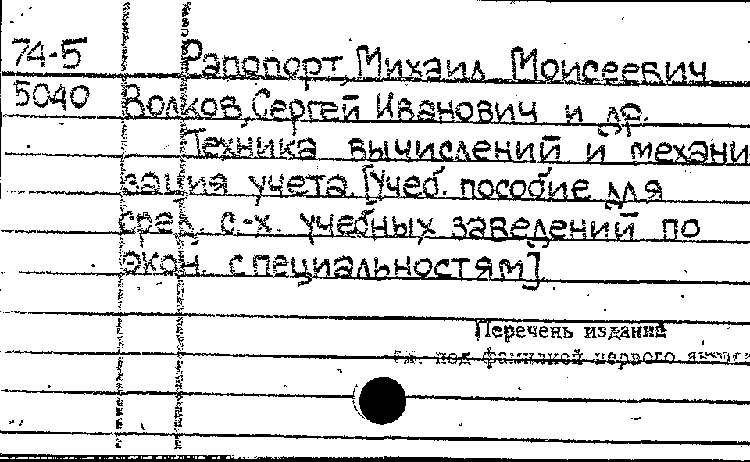 74-5 Рапопорт, Михаил Моисеевич
5040 Волков, Сергей Иванович и др.
Техника вычислений и механи
зация учета. [Учеб. пособие для
сред. с.-х. учебных заведений по
экон. специальностям]
Перечень изданий
см. под фамилией первого автора